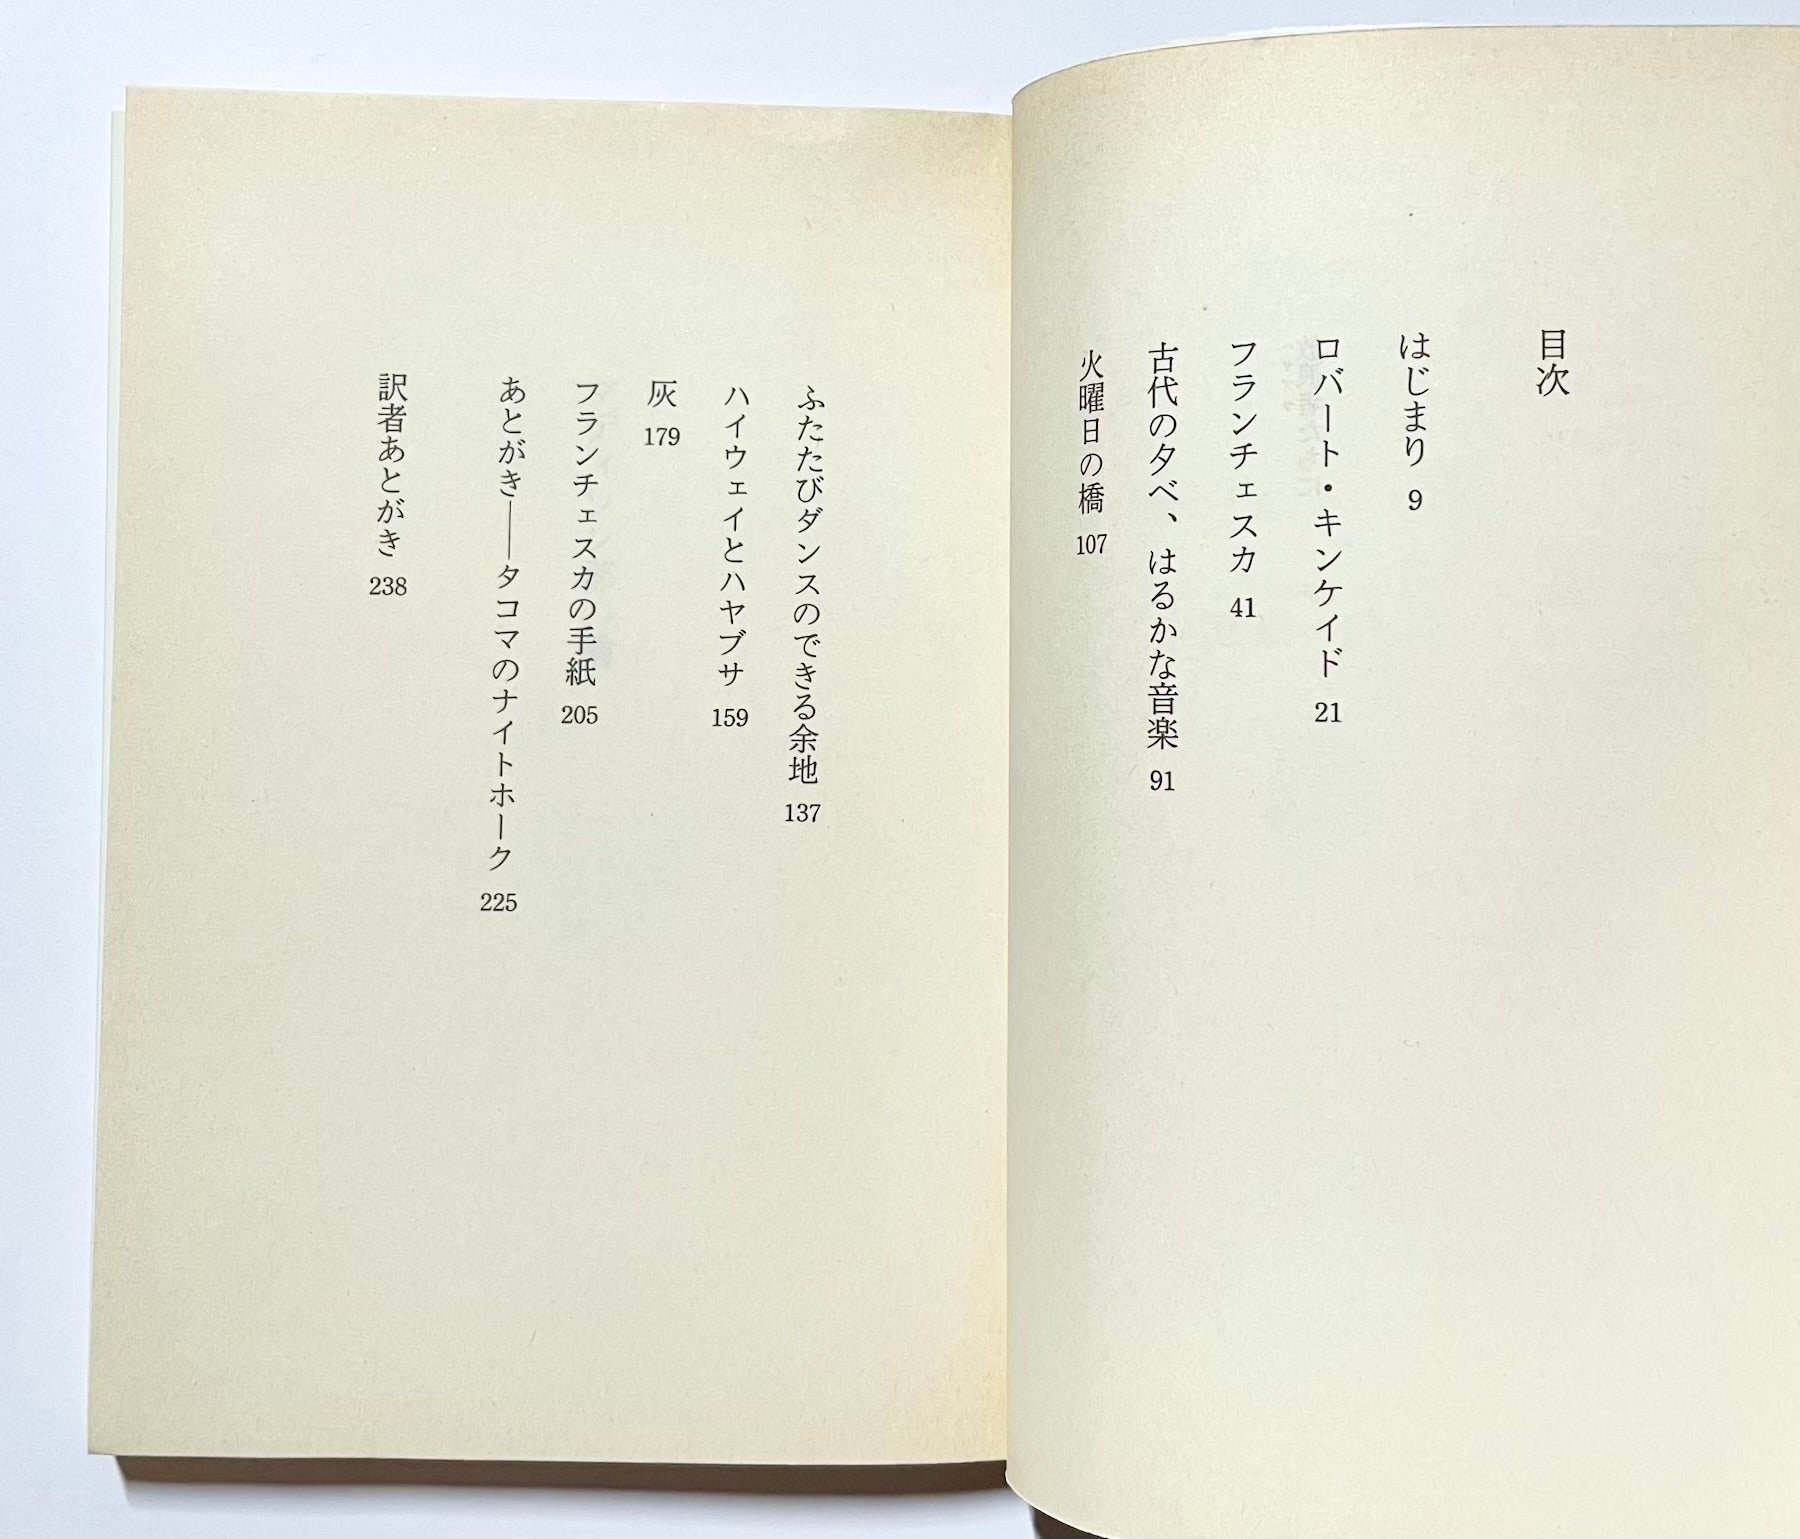 目次
はじまり 9
ロバート・キンケイド 21
フランチェスカ 41
古代の夕べ、はるかな音楽 91
火曜日の橋 107
ふたたびダンスのできる余地 137
ハイウェイとハヤブサ 159
灰 179
フランチェスカの手紙 205
あとがき――タコマのナイトホーク 225
訳者あとがき 238